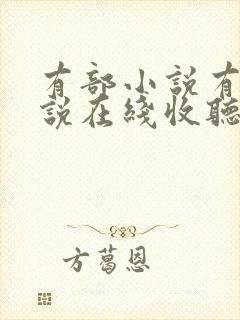 有部小説有
説在綫收聽
方葛恩